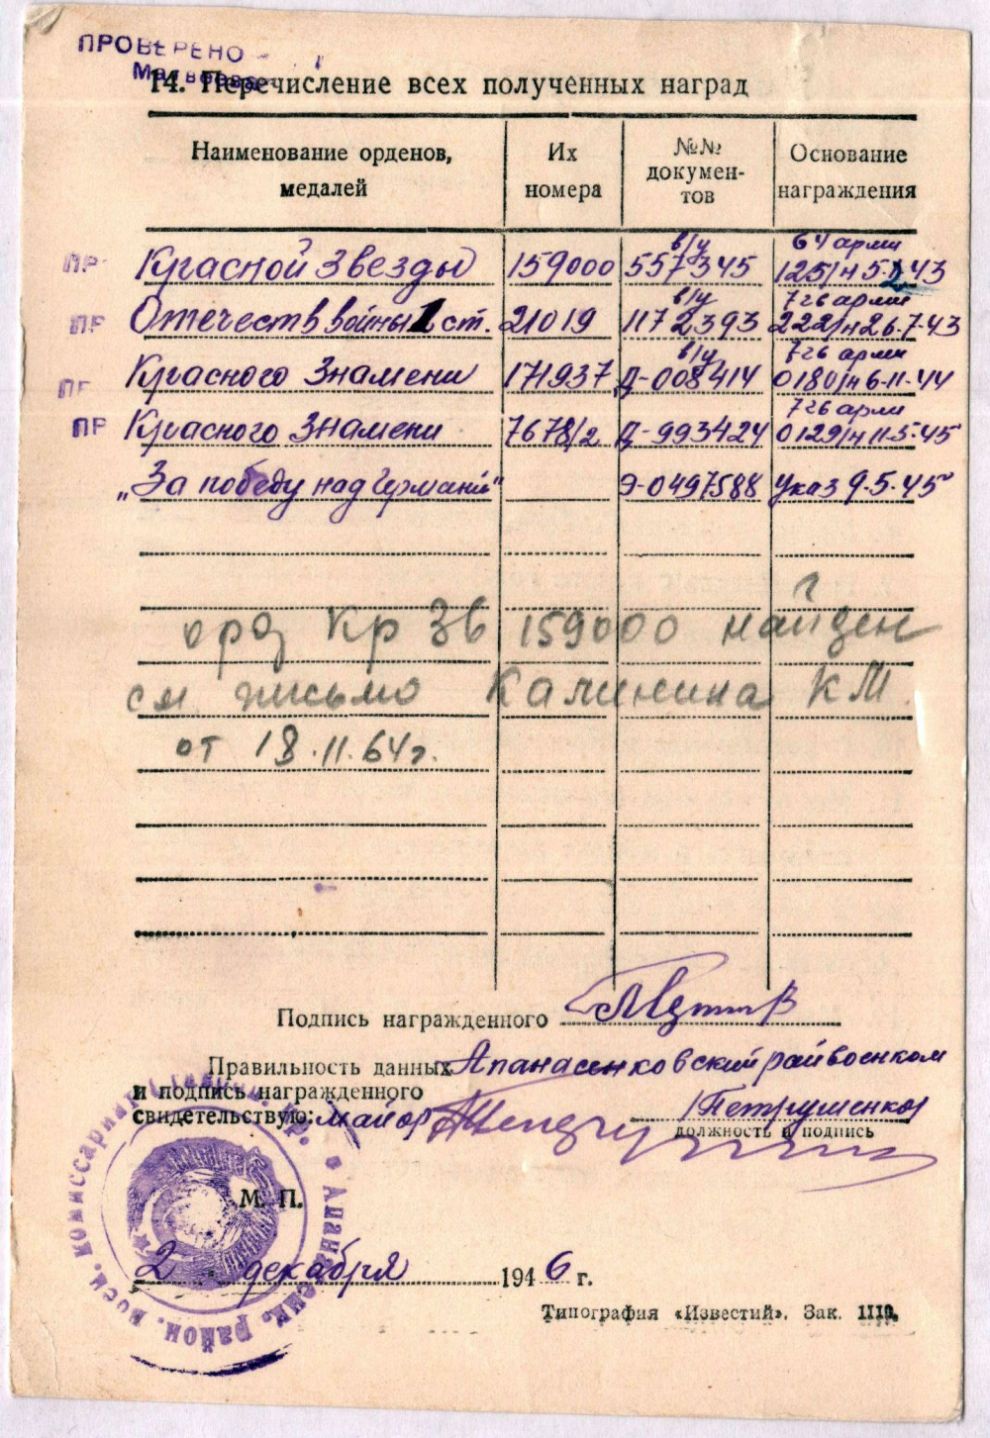 ПРОВЕРЕНО
14. Перечисление всех полученных наград
Наименование орденов, медалей
Их номера
№№ документов
Основание награждения
в/у 64 армии
ПР Красной Звезды 159000 557345 125/н 5.2.43
в/у 7гв армии
ПР Отечеств войны 1 ст. 21019 1172393 222/н 26.7.43
в/у 7гв армии
ПР Красного Знамени 171937 Д-008414 0180/н 6-11-44
7гв армии
ПР Красного Знамени 7678/2 Д-993424 0129/н 11-5-45
„За победу над Германией" Э-0497588 Указ 9.5.45
орд Кр Зв 159000 найден
см. письмо Калинина КМ.
от 18.11.64г.
Подпись награжденного
Правильность данных Апанасенковский райвоенком
и подпись награжденного
свидетельствую: майор /Петрушенко/
должность и подпись
М. П.
2 декабря 1946 г.
Типография «Известий». Зак. 1110.